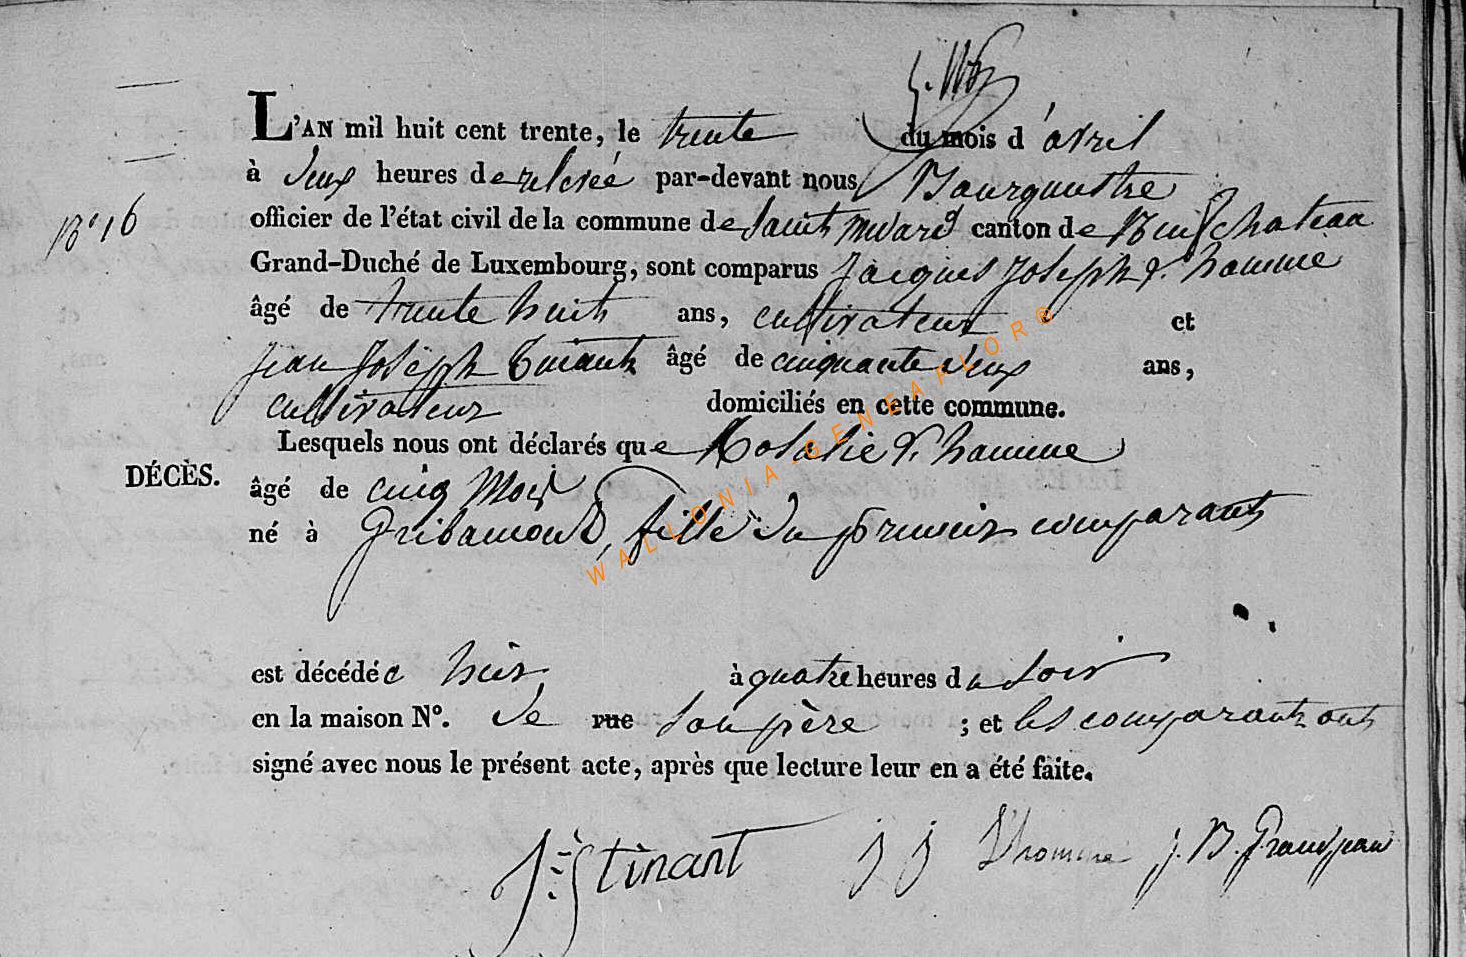 L'AN mil huit cent trente, le trente du mois d'avril
à deux heures de relevée par-devant nous Bourguestre
officier de l'état civil de la commune de Saint Médard canton de Neufchateau
Grand-Duché de Luxembourg, sont comparus Jacques Joseph L'homme
âgé de trente huit ans, cultivateur et
Jean Joseph Tinant âgé de cinquante deux ans,
cultivateur domiciliés en cette commune.
Lesquels nous ont déclarés que Rosalie L'homme
DÉCÈS.
âgé de cinq mois
né à Gribamont, fille du premier comparant
est décédée hier à quatre heures du soir
en la maison N°. de rue son père ; et les comparants ont
signé avec nous le présent acte, après que lecture leur en a été faite.
J: J: tinant J J L'homme J. B. Grandjean
WALLONIA-GENEAFLOR®